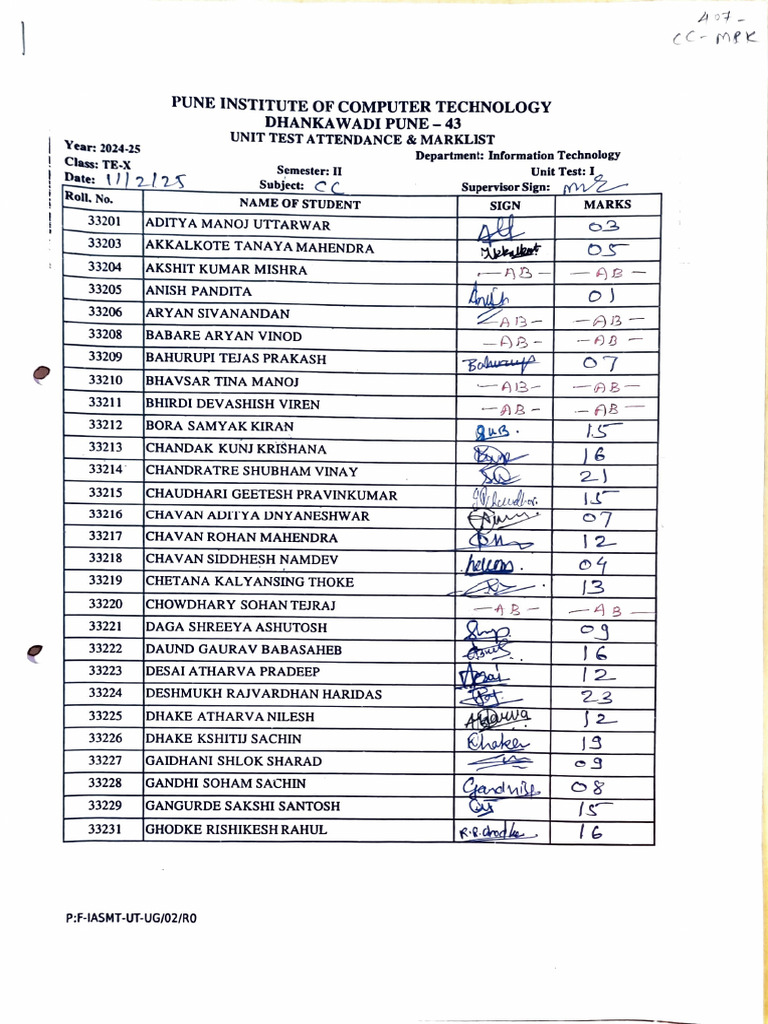 407-
CC- MPK
PUNE INSTITUTE OF COMPUTER TECHNOLOGY
DHANKAWADI PUNE – 43
UNIT TEST ATTENDANCE & MARKLIST
Year: 2024-25 Department: Information Technology
Class: TE-X Semester: II Unit Test: I
Date: 11/2/25 Subject: CC Supervisor Sign:
Roll. No. NAME OF STUDENT SIGN MARKS
33201 ADITYA MANOJ UTTARWAR 03
33203 AKKALKOTE TANAYA MAHENDRA 05
33204 AKSHIT KUMAR MISHRA —AB— —AB—
33205 ANISH PANDITA Anish 01
33206 ARYAN SIVANANDAN —AB— —AB—
33208 BABARE ARYAN VINOD —AB— —AB—
33209 BAHURUPI TEJAS PRAKASH 07
33210 BHAVSAR TINA MANOJ —AB— —AB—
33211 BHIRDI DEVASHISH VIREN —AB— —AB—
33212 BORA SAMYAK KIRAN 15
33213 CHANDAK KUNJ KRISHANA 16
33214 CHANDRATRE SHUBHAM VINAY 21
33215 CHAUDHARI GEETESH PRAVINKUMAR 15
33216 CHAVAN ADITYA DNYANESHWAR 07
33217 CHAVAN ROHAN MAHENDRA 12
33218 CHAVAN SIDDHESH NAMDEV 04
33219 CHETANA KALYANSING THOKE 13
33220 CHOWDHARY SOHAN TEJRAJ —AB— —AB—
33221 DAGA SHREEYA ASHUTOSH 09
33222 DAUND GAURAV BABASAHEB 16
33223 DESAI ATHARVA PRADEEP 12
33224 DESHMUKH RAJVARDHAN HARIDAS 23
33225 DHAKE ATHARVA NILESH Atharva 12
33226 DHAKE KSHITIJ SACHIN 19
33227 GAIDHANI SHLOK SHARAD 09
33228 GANDHI SOHAM SACHIN 08
33229 GANGURDE SAKSHI SANTOSH 15
33231 GHODKE RISHIKESH RAHUL R.R.Ghodke 16
P:F-IASMT-UT-UG/02/R0